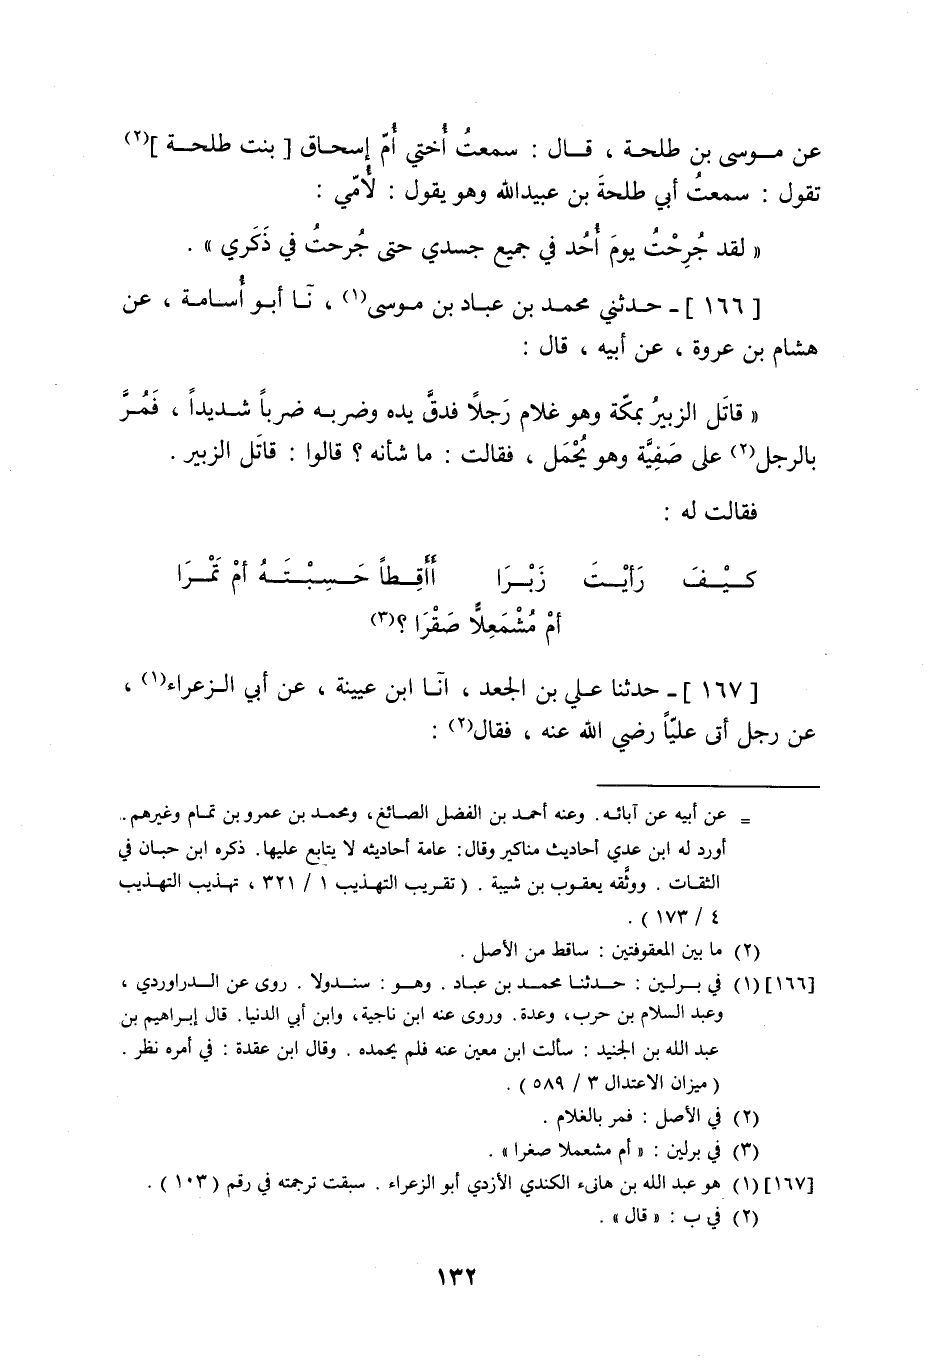 عن مـوسى بن طلحـة ، قـال : سمعتُ أُختي أُمّ إسحـاق [ بنت طلحـة ](٢)
تقول : سمعتُ أبي طلحةَ بن عبيدالله وهو يقول : لُأمّي :
« لقد جُرِحْتُ يومَ أُحُد في جميع جسدي حتى جُرحتُ في ذَكَري » .
[ ١٦٦ ] ـ حـدثني محمـد بن عبـاد بن مـوسى(١) ، نَـا أبـو أُسامـة ، عن
هشام بن عروة ، عن أبيه ، قال :
« قاتَل الزبيرُ بمكّة وهو غلام رَجلاً فدقَّ يده وضربـه ضرباً شـديداً ، فَمُرَّ
بالرجل(٢) على صَفِيَّة وهو يُحْمَل ، فقالت : ما شأنه ؟ قالوا : قاتَل الزبير .
فقالت له :
كَـيْـفَ رَأيْـتَ زَبْـرَا أَأَقِـطاً حَـسِـبْـتَـهُ أمْ تَمْـرَا
أمْ مُشْمَعِلاًّ صَقْرَا ؟(٣)
[ ١٦٧ ] ـ حدثنا علـي بن الجعد ، انَـا ابن عيينة ، عن أبي الـزعراء(١) ،
عن رجل أتى عليّاً رضي الله عنه ، فقال(٢) :
= عن أبيه عن آبائـه. وعنه أحمـد بن الفضل الصـائغ، ومحمـد بن عمرو بن تمـام وغيرهم.
أورد له ابن عدي أحاديث مناكير وقال: عامة أحاديثه لا يتابع عليها. ذكره ابن حبـان في
الثقـات . ووثَّقه يعقـوب بن شيبة . ( تقـريب التهـذيب ١ / ٣٢١ ، تهـذيب التهذيب
٤ / ١٧٣ ) .
(٢) ما بين المعقوفتين : ساقط من الأصل .
[١٦٦] (١) في بـرلين : حـدثنـا محمـد بن عبـاد . وهـو : سنـدولا . روى عن الـدراوردي ،
وعبد السلام بن حرب، وعدة. وروى عنه ابن ناجية، وابن أبي الدنيا. قال إبـراهيم بن
عبد الله بن الجنيد : سألت ابن معين عنه فلم يحمده . وقال ابن عقدة : في أمره نظر .
( ميزان الاعتدال ٣ / ٥٨٩ ) .
(٢) في الأصل : فمر بالغلام .
(٣) في برلين : « أم مشعملا صغرا » .
[١٦٧] (١) هو عبد الله بن هانىء الكندي الأزدي أبو الزعراء . سبقت ترجمته في رقم ( ١٠٣ ) .
(٢) في ب : « قال » .
١٣٢